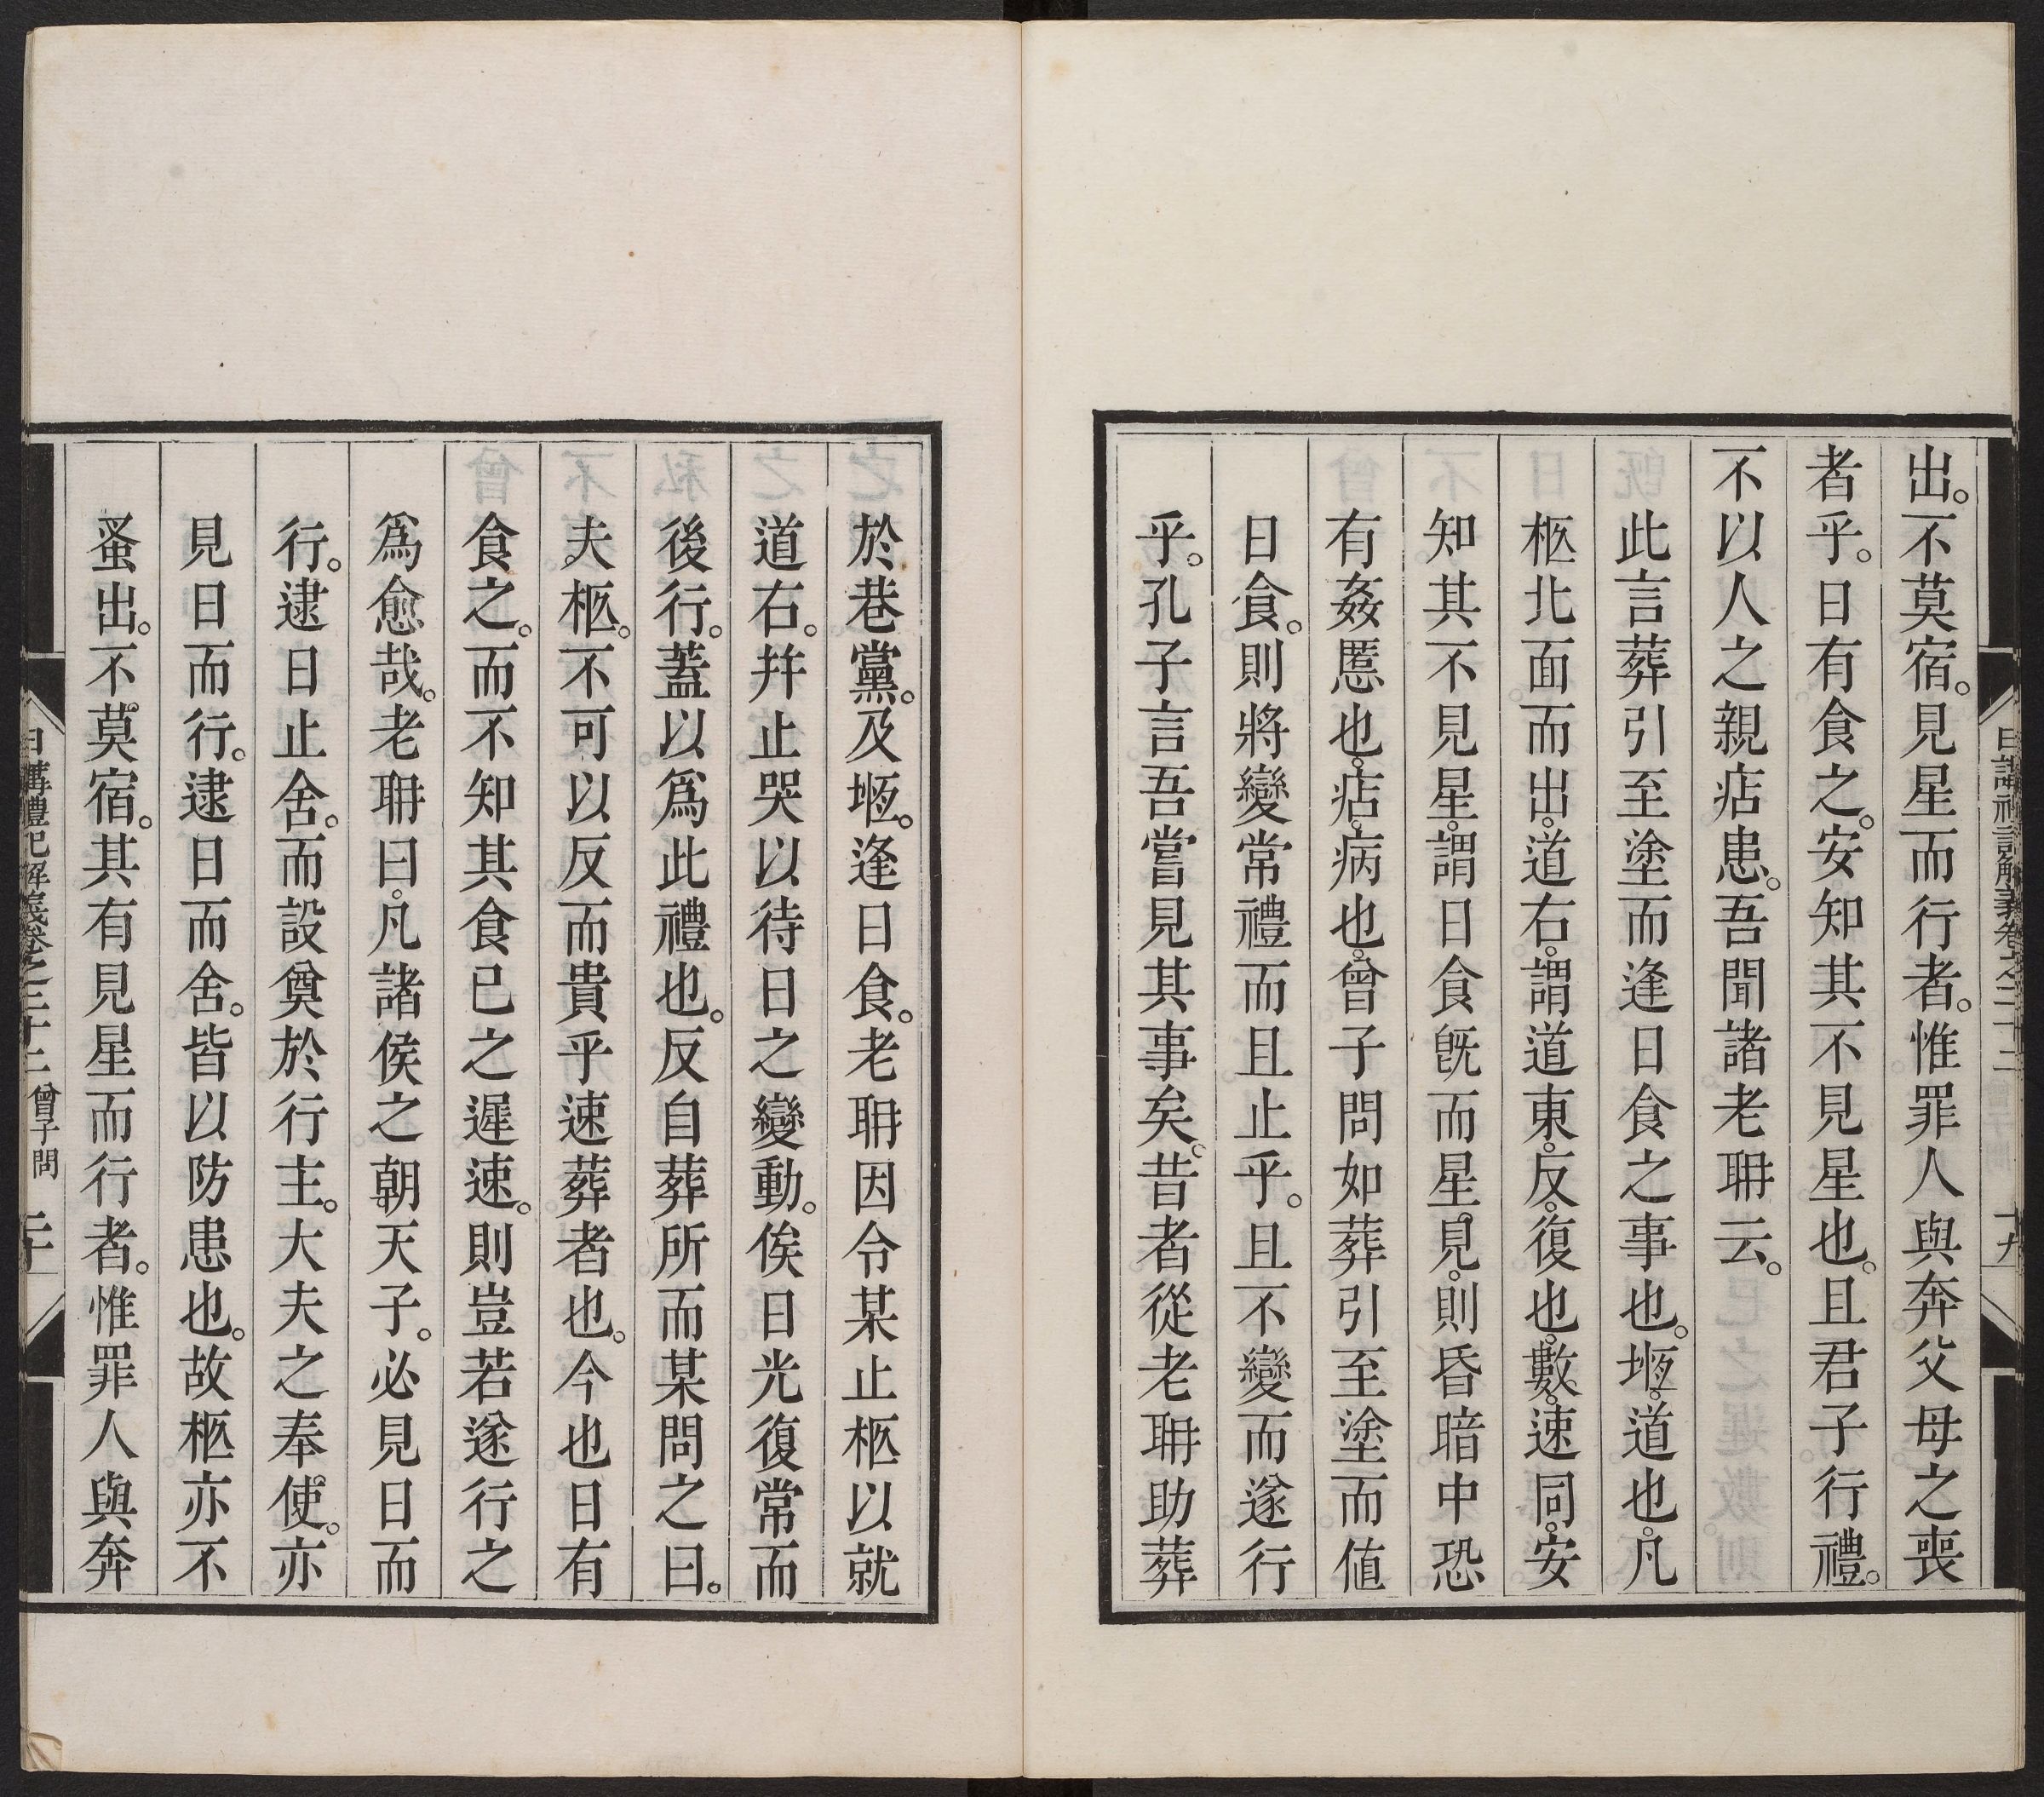 出。不莫宿。見星而行者。惟罪人與奔父母之喪
者乎。日有食之。安知其不見星也。且君子行禮。
不以人之親痁患。吾聞諸老聃云。
此言葬引至塗而逢日食之事也。堩。道也。凡
柩北面而出。道右。謂道東。反。復也。數。速同。安
知其不見星。謂日食旣而星見。則昏暗中恐
有姦慝也。痁。病也。曾子問如葬引至塗而値
日食。則將變常禮而且止乎。且不變而遂行
乎。孔子言吾嘗見其事矣。昔者從老聃助葬
日講禮記解義卷之二十二
十九
於巷黨。及堩。逢日食。老聃因令某止柩以就
道右。并止哭以待日之變動。俟日光復常而
後行。葢以爲此禮也。反自葬所而某問之曰。
夫柩。不可以反而貴乎速葬者也。今也日有
食之。而不知其食已之遲速。則豈若遂行之
爲愈哉。老聃曰。凡諸侯之朝天子。必見日而
行。逮日止舍。而設奠於行主。大夫之奉使。亦
見日而行。逮日而舍。皆以防患也。故柩亦不
蚤出。不莫宿。其有見星而行者。惟罪人與奔
日講禮記解義卷之二十二 曾子問 二十